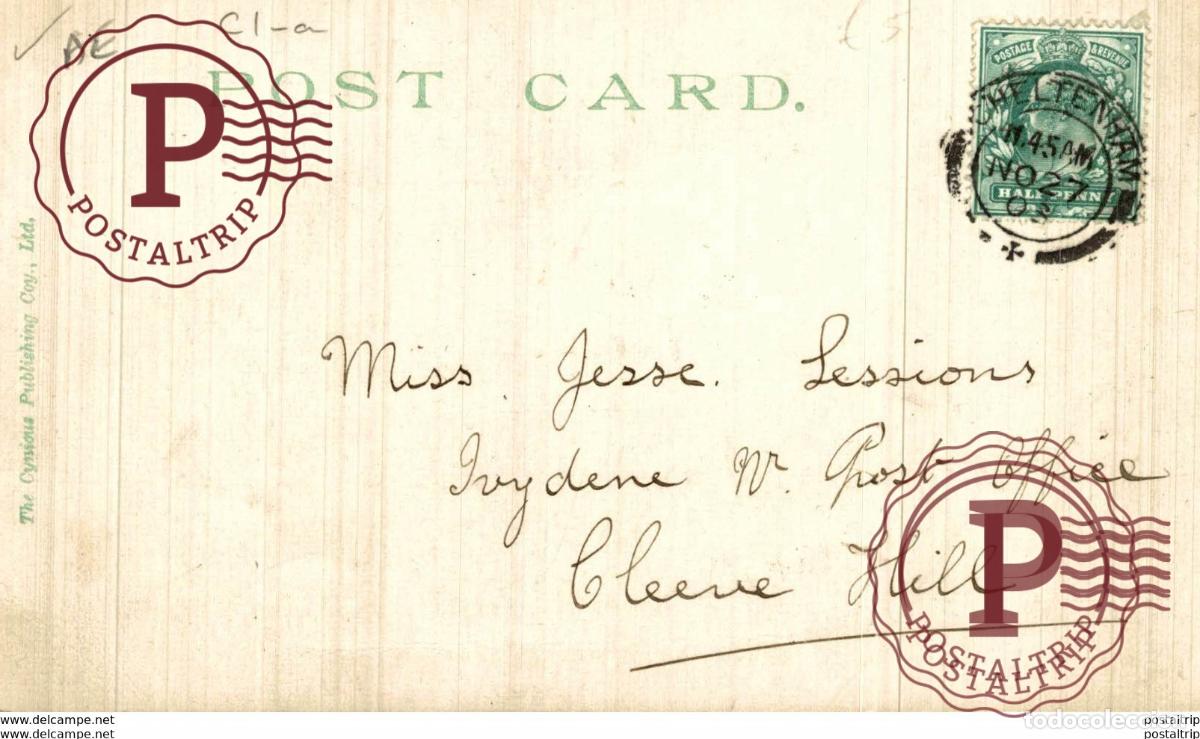 AE C1-a £5
POST CARD.
POSTAGE & REVENUE
HALF PENNY
CHELTENHAM
11.45AM
NO 27
03
P
POSTALTRIP
The Cynicus Publishing Coy., Ltd.
Miss Jesse. Sessions
Ivydene Nr. Post Office
Cleeve Hill
P
POSTALTRIP
POSTALTRIP
www.delcampe.net
www.delcampe.net
todocoleccion
postaltrip
postaltrip